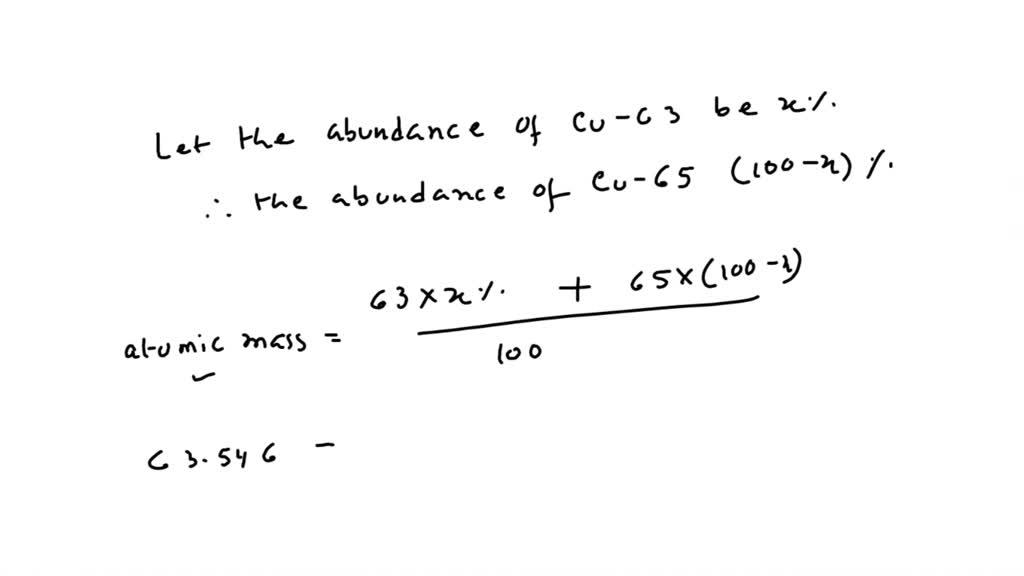 Let the abundance of Cu-63 be x%.
∴ the abundance of Cu-65 (100-x)%.
63 × x% + 65×(100-x)
atomic mass =
100
63.546 -